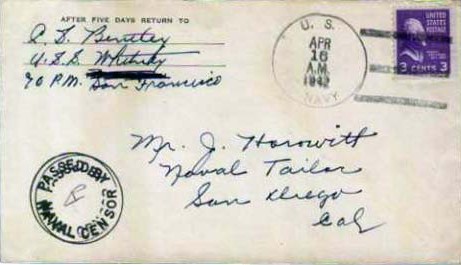 AFTER FIVE DAYS RETURN TO
C. D. Bentley
U.S.S. Whitney
% P.M. San Francisco
U. S.
APR
16
A.M.
1942
NAVY
UNITED
STATES
POSTAGE
3 CENTS 3
Mr. J. Horowitt
Naval Tailor
San Diego
Cal
PASSED BY
NAVAL CENSOR